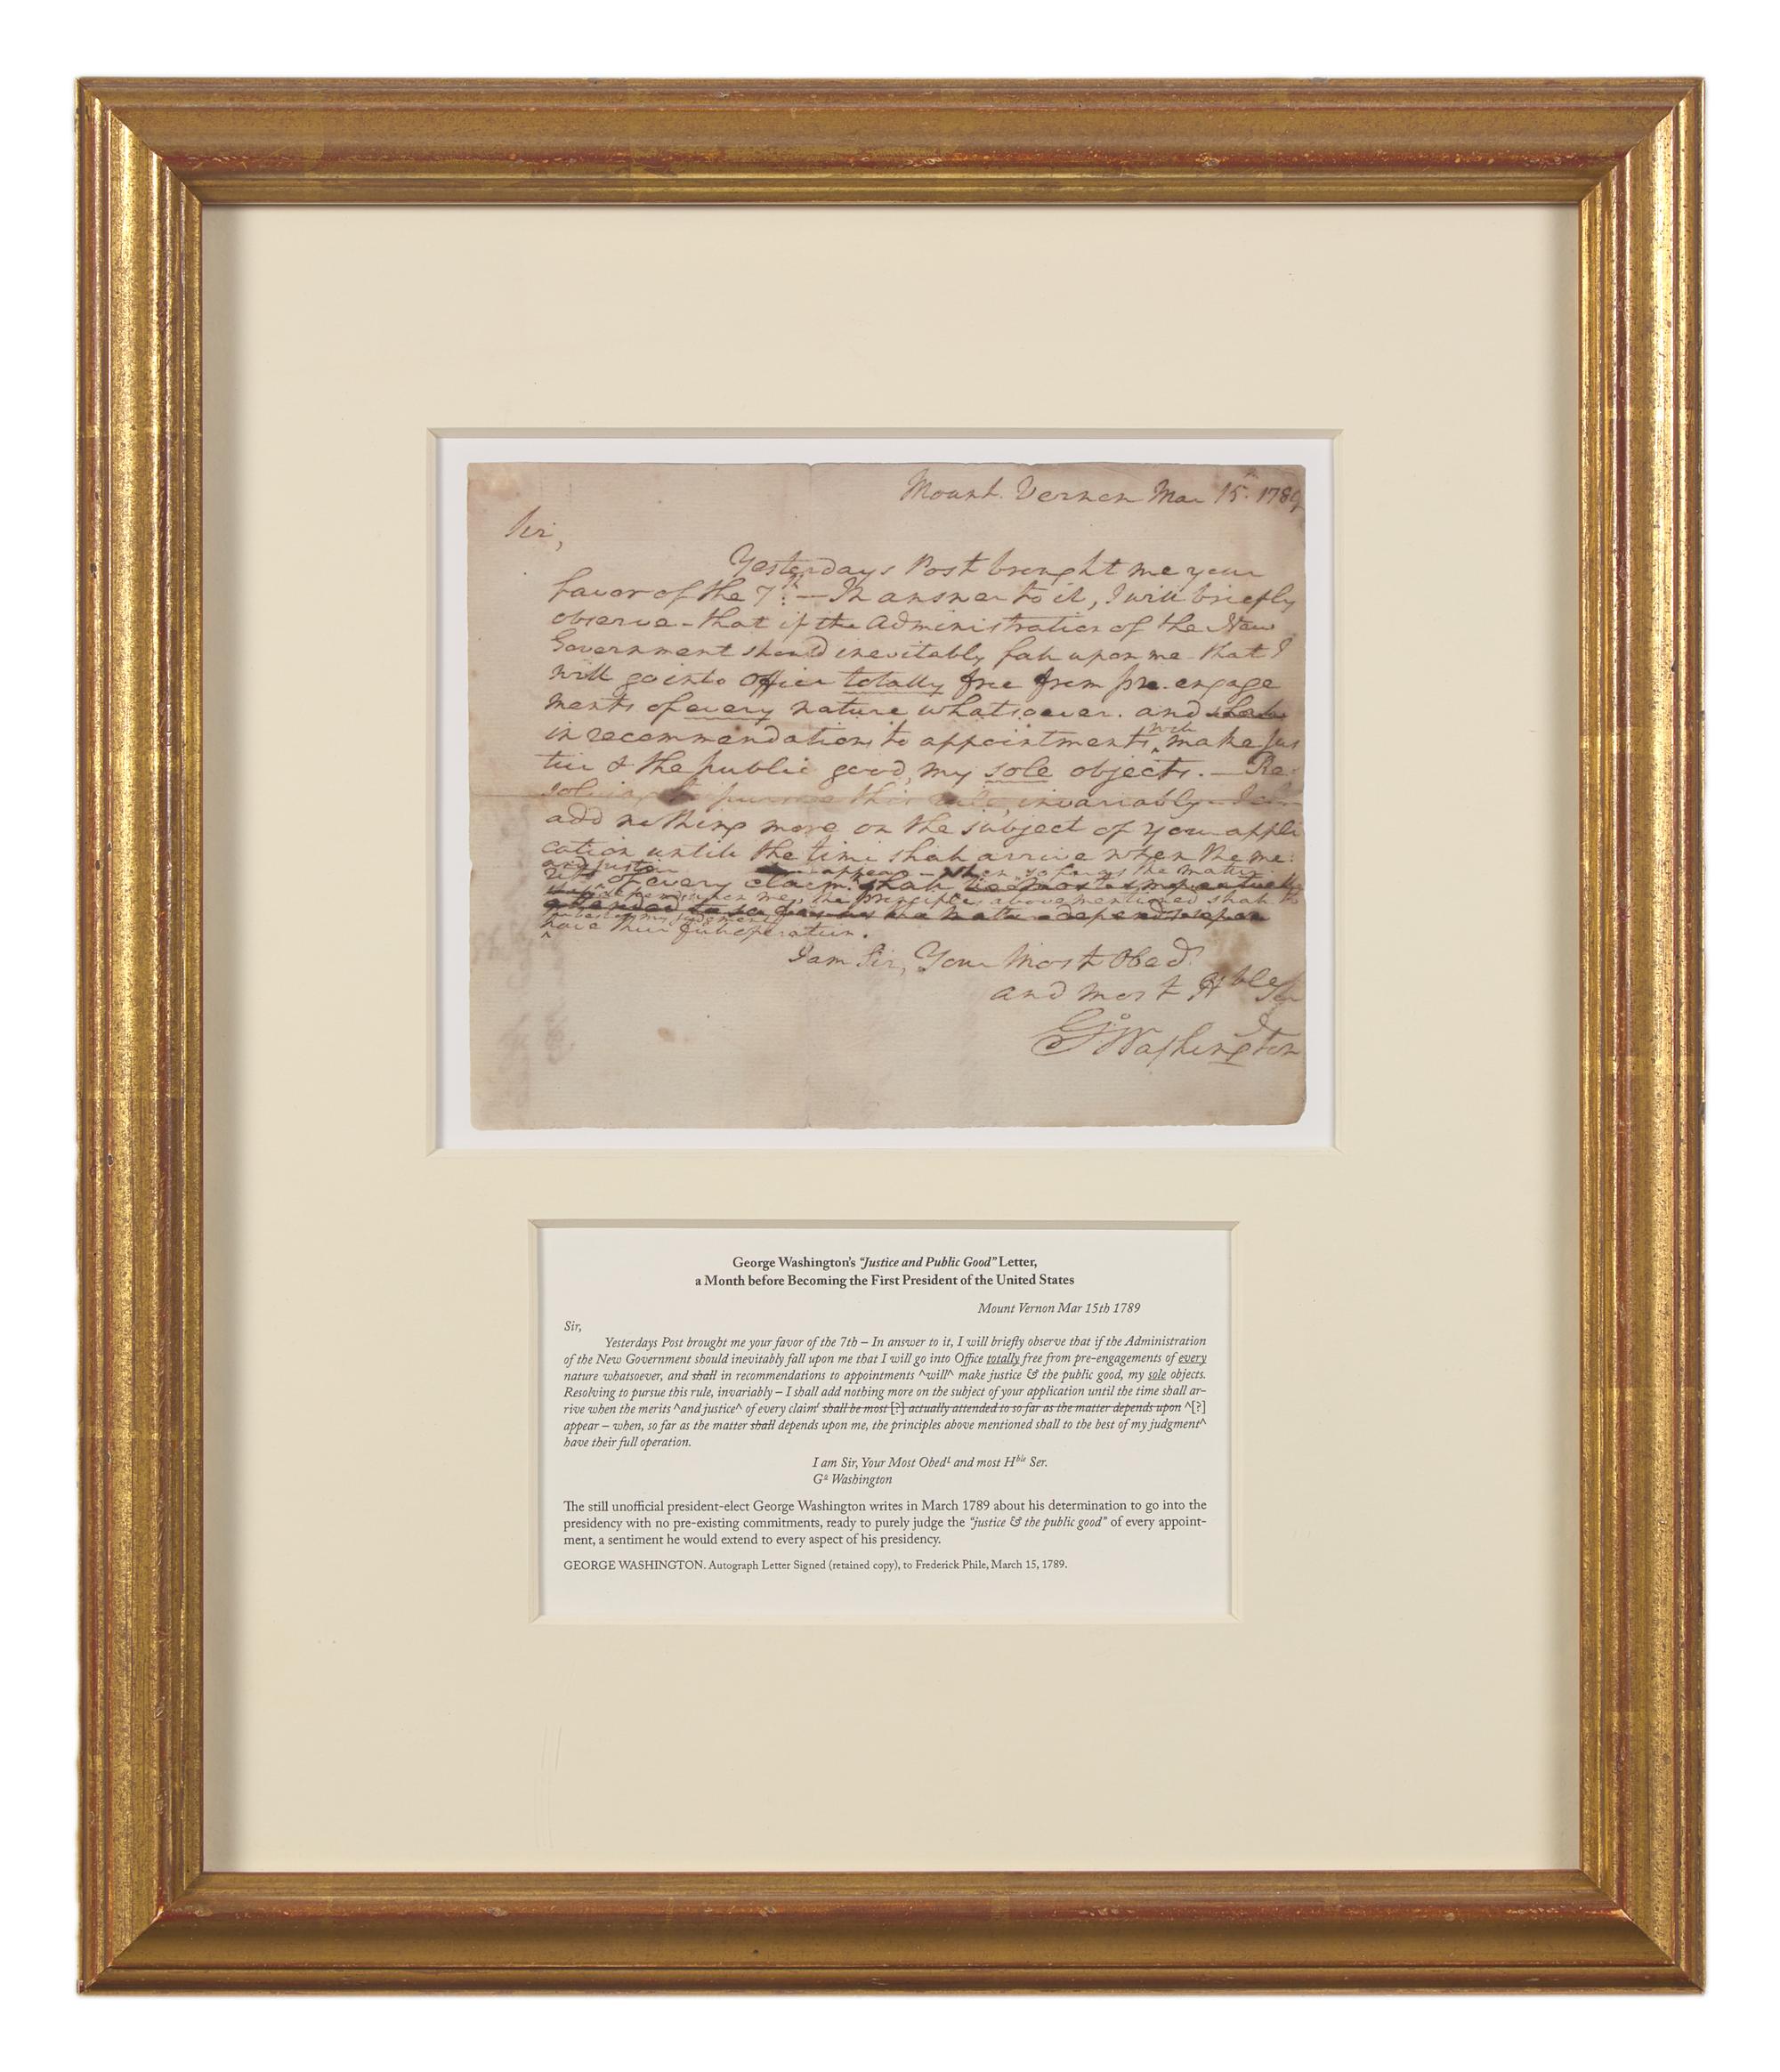 Mount Vernon Mar 15th 1789
Sir,
Yesterdays Post brought me your
favor of the 7th — In answer to it, I will briefly
observe - that if the Administration of the New
Government should inevitably fall upon me - that I
will go into Office totally free from pre-engage
ments of every nature whatsoever. and shall
in recommendations to appointments ^will make jus
tice & the public good, my sole objects. — Re-
solving to pursue this rule, invariably - I shall
add nothing more on the subject of your appli
cation untill the time shall arrive when the me-
and justice appear - when, so far as the matter
rits ^ of every claim shall be most
depends upon me, the principles abovementioned shall to
attended to so far as the matter depends upon
the best of my judgment
^ have their full operation.
I am Sir, Your Most Obedt
and most Hble Ser
Go Washington
George Washington's "Justice and Public Good" Letter,
a Month before Becoming the First President of the United States
Mount Vernon Mar 15th 1789
Sir,
Yesterdays Post brought me your favor of the 7th – In answer to it, I will briefly observe that if the Administration
of the New Government should inevitably fall upon me that I will go into Office totally free from pre-engagements of every
nature whatsoever, and shall in recommendations to appointments ^will^ make justice & the public good, my sole objects.
Resolving to pursue this rule, invariably – I shall add nothing more on the subject of your application until the time shall ar-
rive when the merits ^and justice^ of every claim' shall be most [?] actually attended to so far as the matter depends upon ^[?]
appear – when, so far as the matter shall depends upon me, the principles above mentioned shall to the best of my judgment^
have their full operation.
I am Sir, Your Most Obedt and most Hble Ser.
Go Washington
The still unofficial president-elect George Washington writes in March 1789 about his determination to go into the
presidency with no pre-existing commitments, ready to purely judge the "justice & the public good" of every appoint-
ment, a sentiment he would extend to every aspect of his presidency.
GEORGE WASHINGTON. Autograph Letter Signed (retained copy), to Frederick Phile, March 15, 1789.